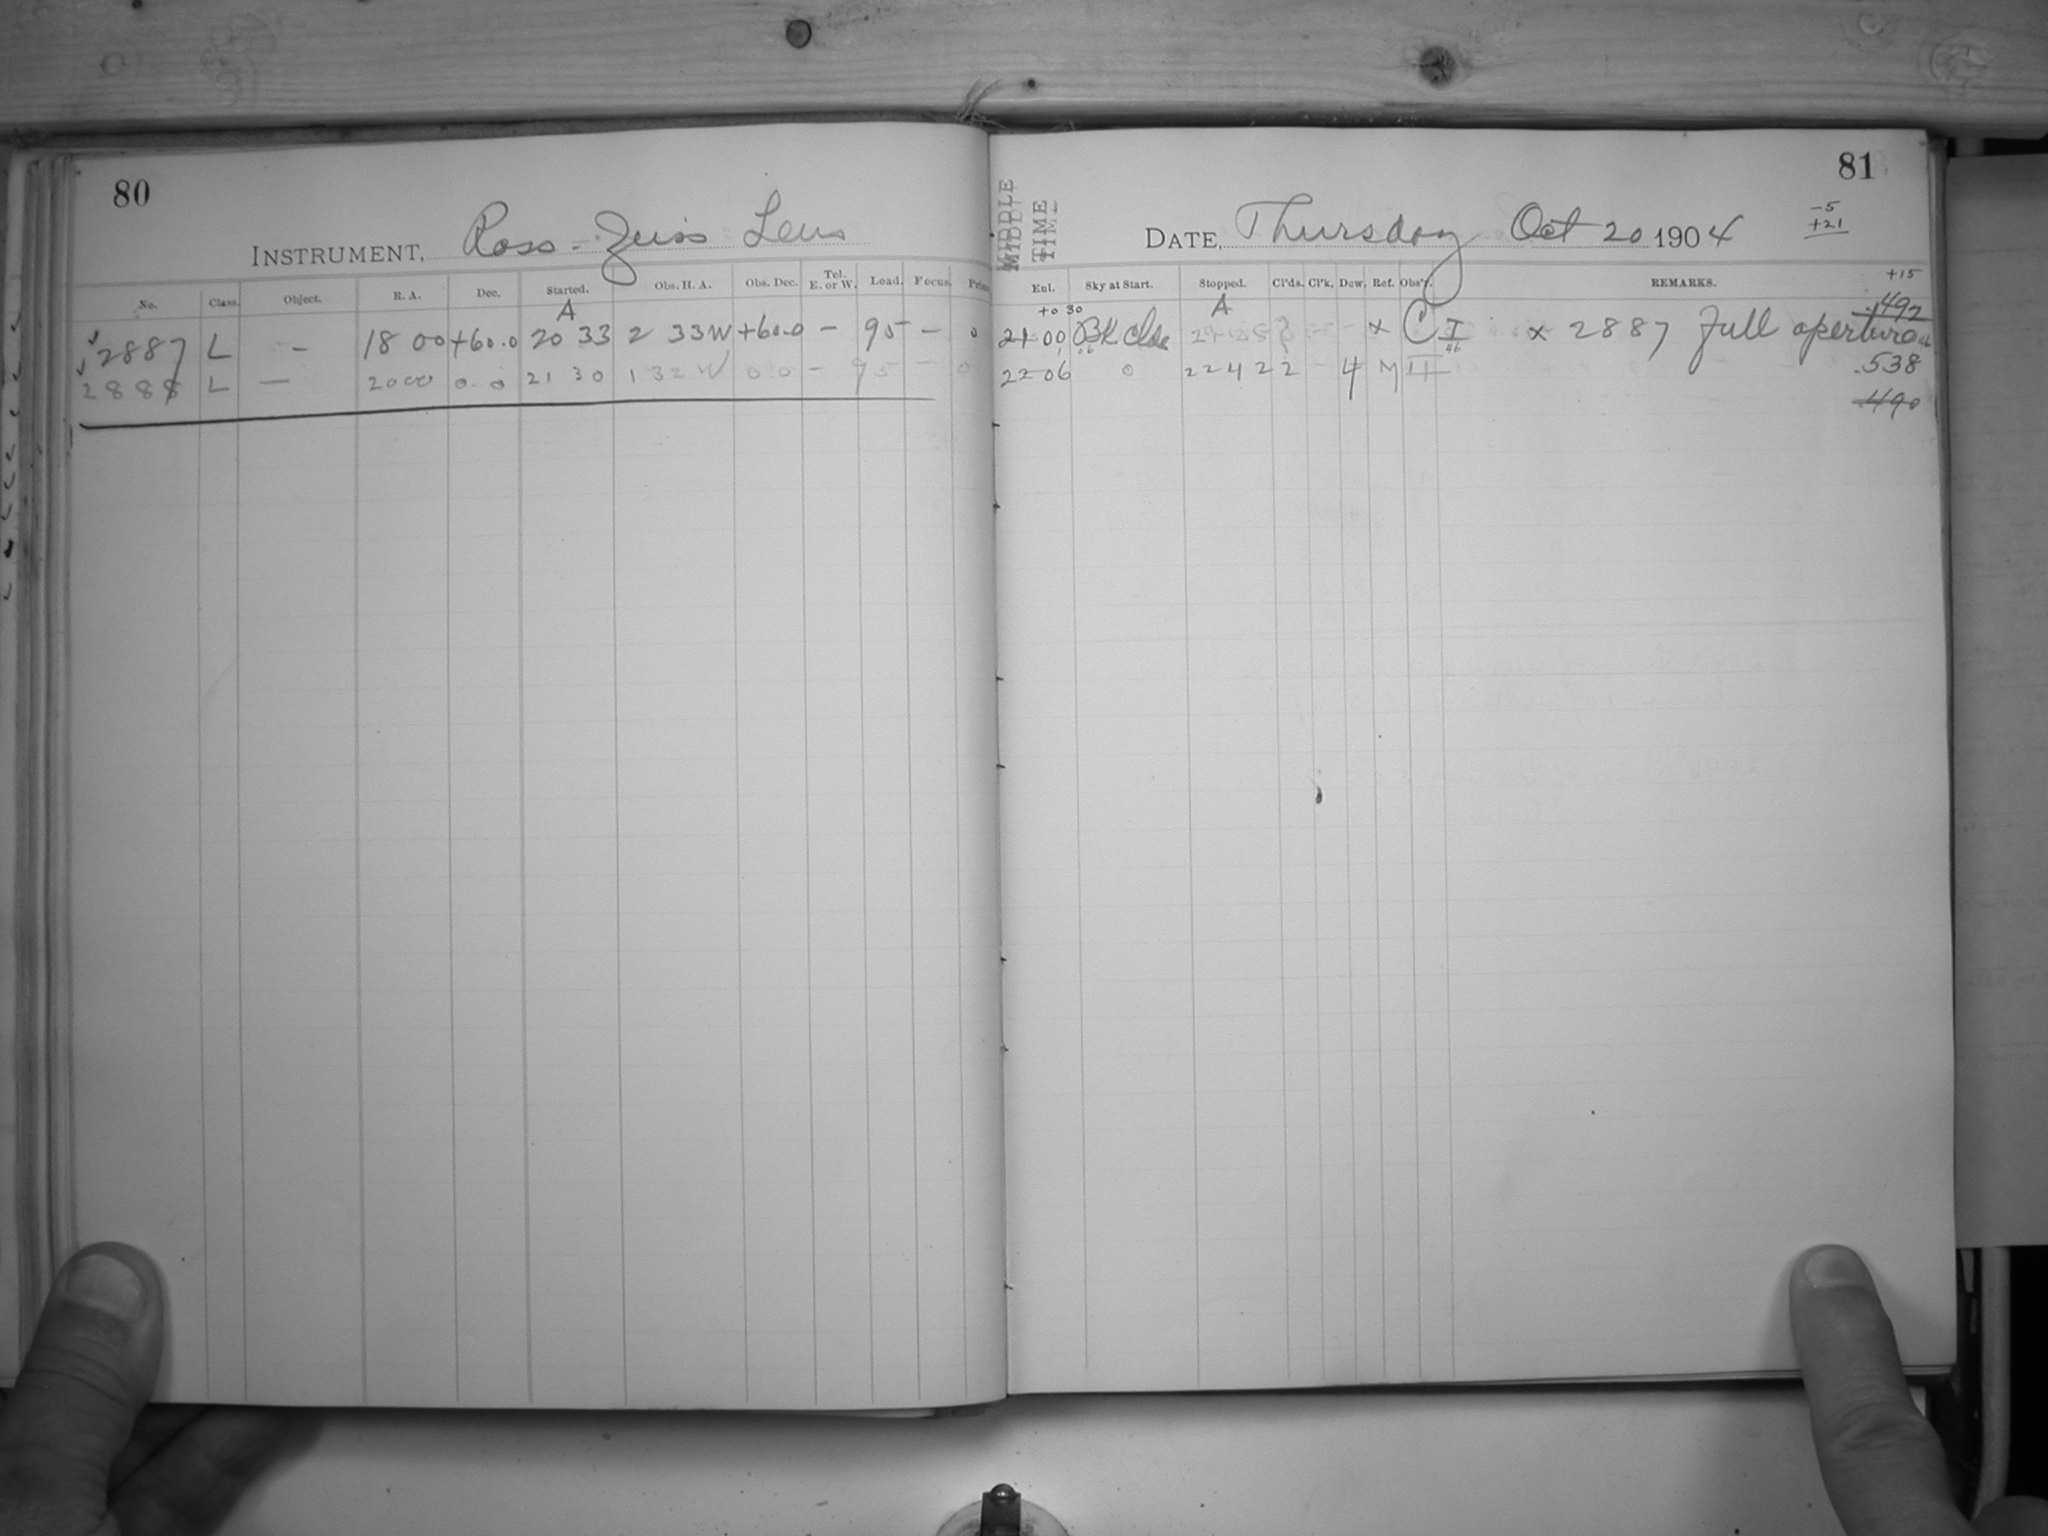 80
INSTRUMENT, Ross-Zeiss Lens
No. Class. Object. R. A. Dec. Started. Obs. H. A. Obs. Dec. Tel. E. or W. Load. Focus.
A
2887 L - 18 00 +60.0 20 33 2 33W +60.0 - 95 - 0
2888 L - 20 00 0.0 21 30 1 32 W 0.0 - 95 - 0
81
MIDDLE TIME
DATE, Thursday Oct 20 1904
-5
+21
+15
Sky at Start. Stopped. Cl'ds. Cl'k. Dew. Ref. Obs'r. REMARKS.
+0 30 A .492
21 00 x C I x 2887 Full aperture
46
22 06 0 22 42 2 - 4 M II .538
.490